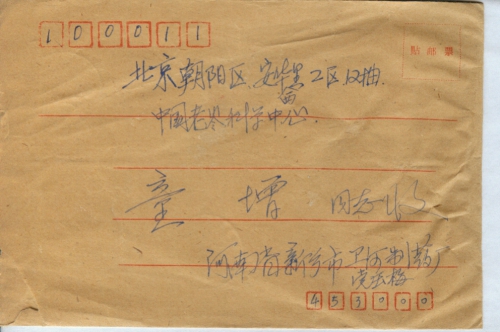 100011
贴邮票
北京朝阳区安华里二区12楼
中国老龄科学中心
童增 同志收
河南省新乡市卫河制药厂
453000